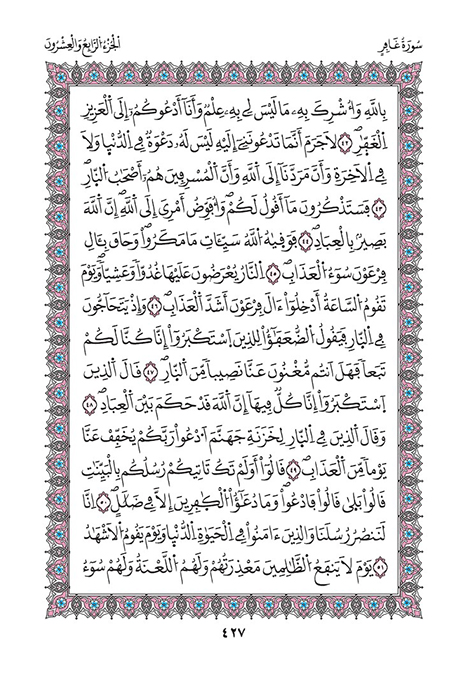 سُورَةُ غَافِرٍ
الجُزْءُ الرَّابِعُ وَالْعِشْرُونَ
بِاللَّهِ وَأُشْرِكَ بِهِۦ مَا لَيْسَ لِي بِهِۦ عِلْمٌ وَأَنَآ أَدْعُوكُمْ إِلَى اَ۬لْعَزِيزِ
اِ۬لْغَفّٰرِۖ ٤٢ لَا جَرَمَ أَنَّمَا تَدْعُونَنِےٓ إِلَيْهِ لَيْسَ لَهُۥ دَعْوَةٌ فِے اِ۬لدُّنْي۪ا وَلَا
فِے اِ۬لَاخِرَةِ وَأَنَّ مَرَدَّنَآ إِلَى اَ۬للَّهِ وَأَنَّ اَ۬لْمُسْرِفِينَ هُمُۥٓ أَصْحَٰبُ اُ۬لنّ۪ارِۖ
٤٣ فَسَتَذْكُرُونَ مَآ أَقُولُ لَكُمْۖ وَأُفَوِّضُ أَمْرِيَ إِلَى اَ۬للَّهِۖ إِنَّ اَ۬للَّهَ
بَصِيرُۢ بِالْعِبَادِۖ ٤٤ فَوَق۪يٰهُ اُ۬للَّهُ سَيِّـَٔاتِ مَا مَكَرُواْۖ وَحَاقَ بِـَٔالِ
فِرْعَوْنَ سُوٓءُ اُ۬لْعَذَابِۖ ٤٥ اِ۬لنَّارُ يُعْرَضُونَ عَلَيْهَا غُدُوّاٗ وَعَشِيّاٗۖ وَيَوْمَ
تَقُومُ اُ۬لسَّاعَةُ أَدْخِلُوٓاْ ءَالَ فِرْعَوْنَ أَشَدَّ اَ۬لْعَذَابِۖ ٤٦ وَإِذْ يَتَحَآجُّونَ
فِے اِ۬لنّ۪ارِ فَيَقُولُ اُ۬لضُّعَفَٰٓؤُاْ لِلذِينَ اَ۪سْتَكْبَرُوٓاْ إِنَّا كُنَّا لَكُمْ
تَبَعاٗ فَهَلَ اَنتُم مُّغْنُونَ عَنَّا نَصِيباٗ مِّنَ اَ۬لنّ۪ارِۖ ٤٧ قَالَ اَ۬لذِينَ
اَ۪سْتَكْبَرُوٓاْ إِنَّا كُلّٞ فِيهَآ إِنَّ اَ۬للَّهَ قَدْ حَكَمَ بَيْنَ اَ۬لْعِبَادِۖ ٤٨
وَقَالَ اَ۬لذِينَ فِے اِ۬لنّ۪ارِ لِخَزَنَةِ جَهَنَّمَ اَ۟دْعُواْ رَبَّكُمْ يُخَفِّفْ عَنَّا
يَوْماٗ مِّنَ اَ۬لْعَذَابِۖ ٤٩ قَالُوٓاْ أَوَلَمْ تَكُ تَاتِيكُمْ رُسُلُكُم بِالْبَيِّنَٰتِۖ
قَالُواْ بَل۪يٰۖ قَالُواْ فَادْعُواْۖ وَمَا دُعَٰٓؤُاْ اُ۬لْكٰ۪فِرِينَ إِلَّا فِے ضَلَٰلٍۖ ٥٠ اِنَّا
لَنَنصُرُ رُسُلَنَا وَالذِينَ ءَامَنُواْ فِے اِ۬لْحَيَوٰةِ اِ۬لدُّنْي۪ا وَيَوْمَ يَقُومُ اُ۬لَاشْهَٰدُ
٥١ يَوْمَ لَا يَنفَعُ اُ۬لظَّٰلِمِينَ مَعْذِرَتُهُمْ وَلَهُمُ اُ۬للَّعْنَةُ وَلَهُمْ سُوٓءُ
٤٢٧